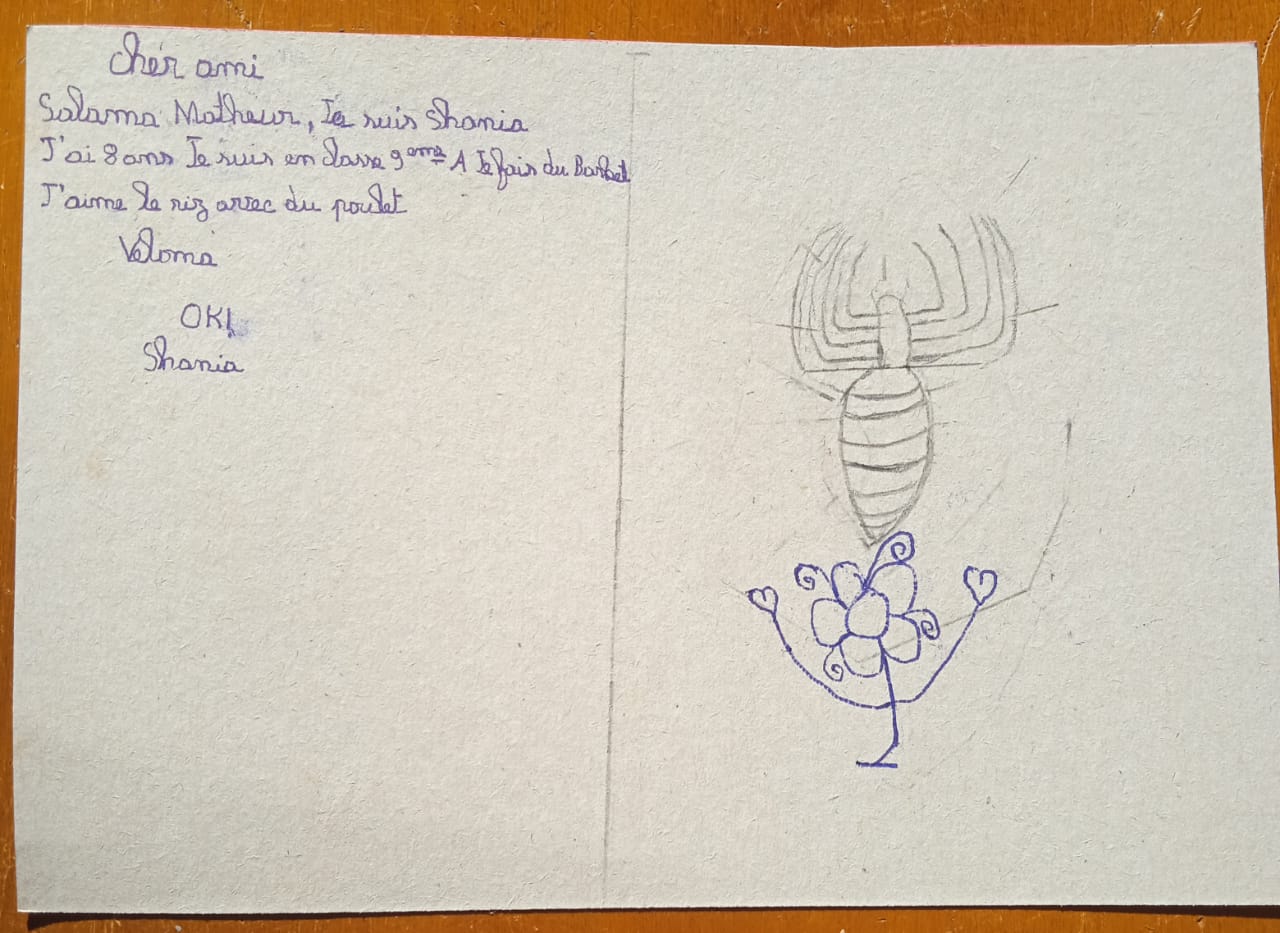 Chér ami
Salama Matheur, Je suis Shania
J'ai 8 ans Je suis en classe 9ème A Je fais du Basket
J'aime le riz avec du poulet
Veloma
OK!
Shania